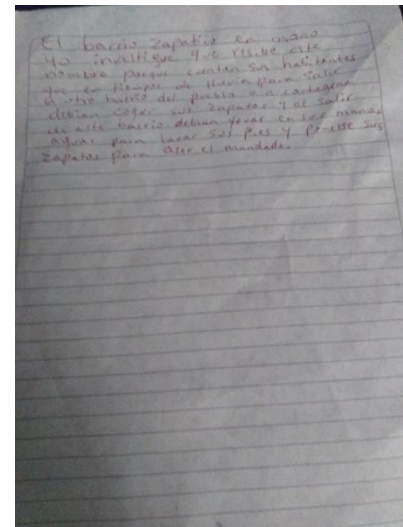 El barrio Zapatico en mano
yo investigue que resibe este
nombre porque cuentan sus habitantes
que en tiempos de lluvia para salir
a otro barrio del pueblo o a cartagena
debian coger sus zapatos y al salir
de este barrio debian en sus manos
agua para lavar sus pies y ponerse sus
zapatos para aser el mandado.